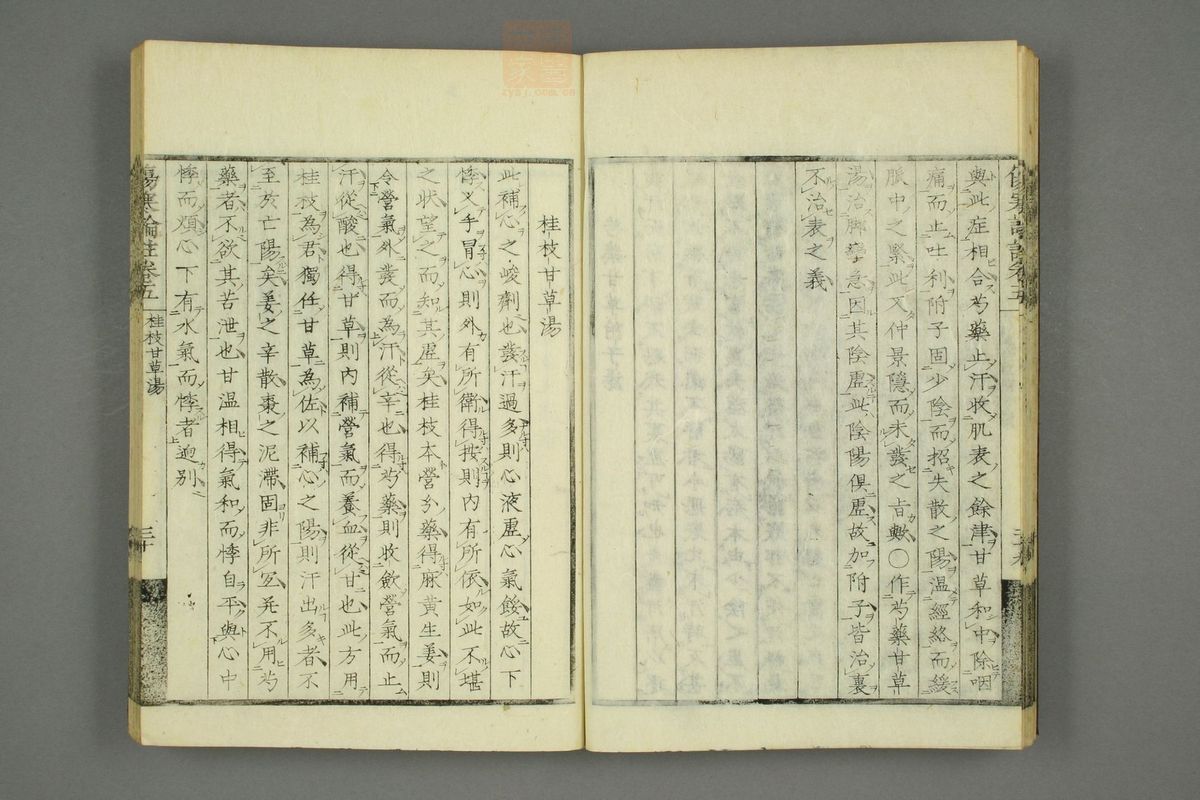 與此症相合芍藥止汗收肌表之餘津甘草和中除咽
痛而止吐利附子固少陰而招失散之陽温經絡而緩
脈中之緊此又仲景隱而未發之旨歟○作芍藥甘草
湯治脚攣急因其陰虛此陰陽俱虛故加附子皆治裏
不治表之義
桂枝甘草湯
此補心之峻劑也發汗過多則心液虛心氣餒故心下
悸叉手冒心則外有所衛得按則內有所依如此不堪
之狀望之而知其虛矣桂枝本營分藥得麻黃生姜則
令營氣外發而為汗從辛也得芍藥則收斂營氣而止
汗從酸也得甘草則內補營氣而養血從甘也此方用
桂枝為君獨任甘草為佐以補心之陽則汗出多者不
至於亡陽矣姜之辛散棗之泥滯固非所宜並不用芍
藥者不欲其苦泄也甘温相得氣和而悸自平與心中
悸而煩心下有水氣而悸者逈別
傷寒論註卷五
桂枝甘草湯
三十
zysj.com.cn